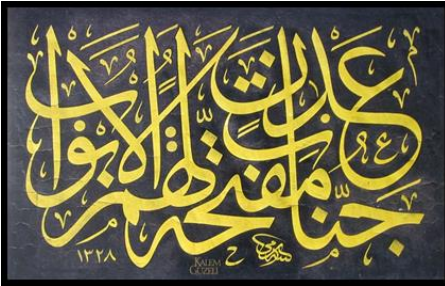 جنّات عدن مفتّحة لهم الابواب
١٣٢٨
KALEM
GÜZELİ